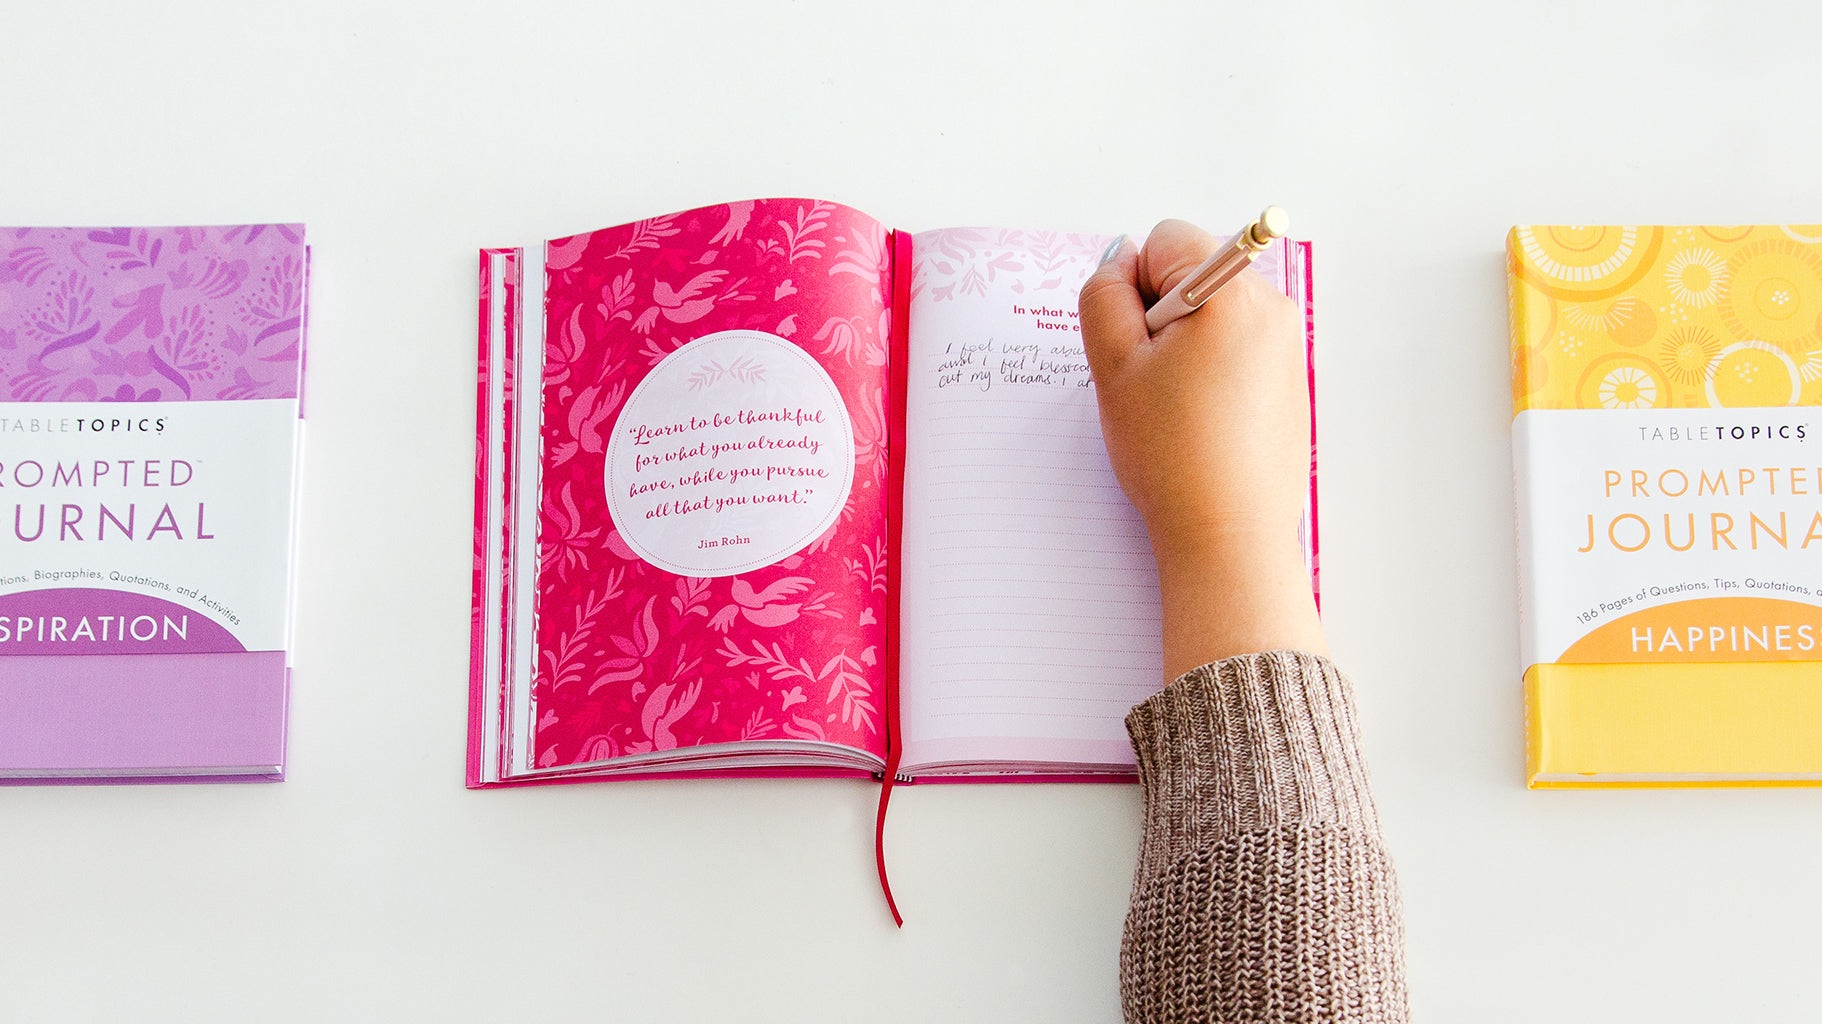 TABLETOPICS
ROMPTED™
OURNAL
tions, Biographies, Quotations, and Activities
SPIRATION
“Learn to be thankful
for what you already
have, while you pursue
all that you want.”
Jim Rohn
In what w
have e
I feel very abu
and I feel blessed
out my dreams. I ar
TABLETOPICS
PROMPTE
JOURNA
186 Pages of Questions, Tips, Quotations, a
HAPPINES